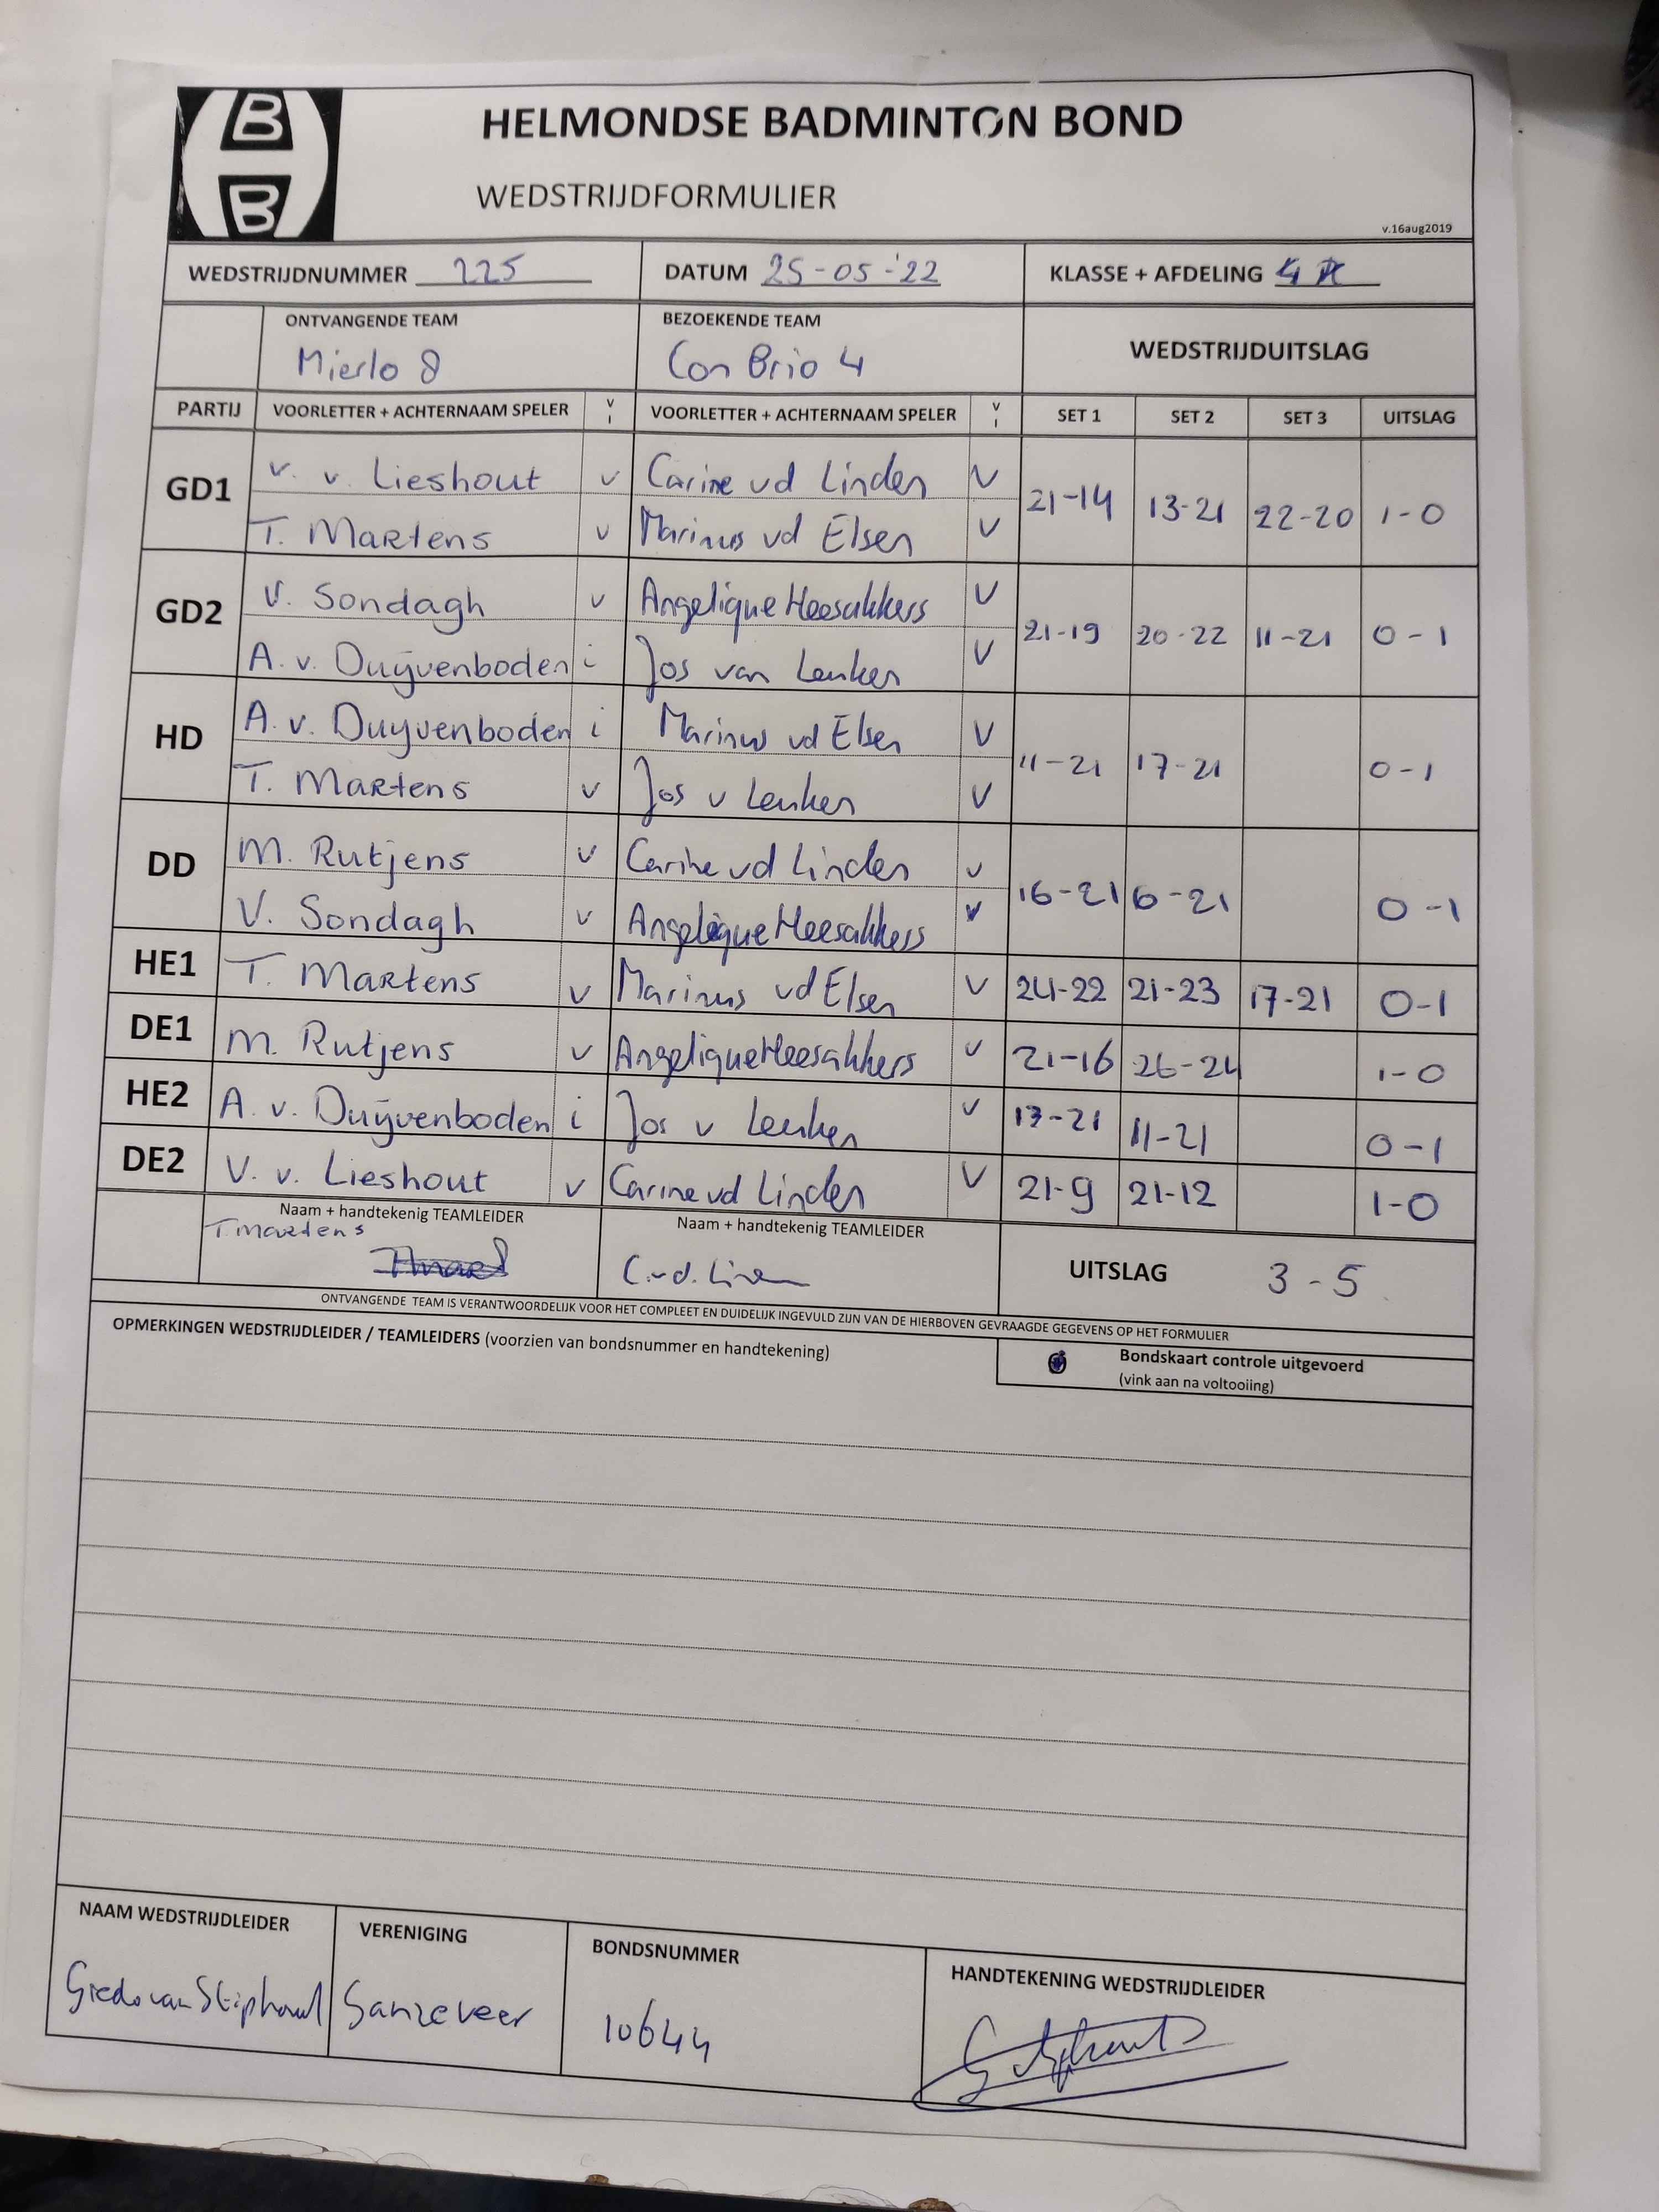 B
B
HELMONDSE BADMINTON BOND
WEDSTRIJDFORMULIER
v.16aug2019
WEDSTRIJDNUMMER 225 DATUM 25-05-'22 KLASSE + AFDELING 4
ONTVANGENDE TEAM BEZOEKENDE TEAM WEDSTRIJDUITSLAG
Mierlo 8 Con Brio 4
PARTIJ VOORLETTER + ACHTERNAAM SPELER V I VOORLETTER + ACHTERNAAM SPELER V I SET 1 SET 2 SET 3 UITSLAG
GD1 v. v. Lieshout v Carine vd Linden V 21-14 13-21 22-20 1-0
T. Martens v Marinus vd Elsen V
GD2 V. Sondagh v Angelique Heesakkers V 21-19 20-22 11-21 0-1
A. v. Duijvenboden i Jos van Leuken V
HD A. v. Duijvenboden i Marinus vd Elsen V 11-21 17-21 0-1
T. Martens v Jos v Leuken V
DD M. Rutjens v Carine vd Linden v 16-21 6-21 0-1
V. Sondagh v Angelique Heesakkers v
HE1 T. Martens v Marinus vd Elsen V 24-22 21-23 17-21 0-1
DE1 M. Rutjens v Angelique Heesakkers v 21-16 26-24 1-0
HE2 A. v. Duijvenboden i Jos v Leuken v 17-21 11-21 0-1
DE2 V. v. Lieshout v Carine vd Linden V 21-9 21-12 1-0
Naam + handtekenig TEAMLEIDER Naam + handtekenig TEAMLEIDER
T Martens C. vd. Linden UITSLAG 3-5
ONTVANGENDE TEAM IS VERANTWOORDELIJK VOOR HET COMPLEET EN DUIDELIJK INGEVULD ZIJN VAN DE HIERBOVEN GEVRAAGDE GEGEVENS OP HET FORMULIER
OPMERKINGEN WEDSTRIJDLEIDER / TEAMLEIDERS (voorzien van bondsnummer en handtekening)
Bondskaart controle uitgevoerd
(vink aan na voltooiing)
NAAM WEDSTRIJDLEIDER VERENIGING BONDSNUMMER HANDTEKENING WEDSTRIJDLEIDER
van Stiphout Ganzeveer 10644